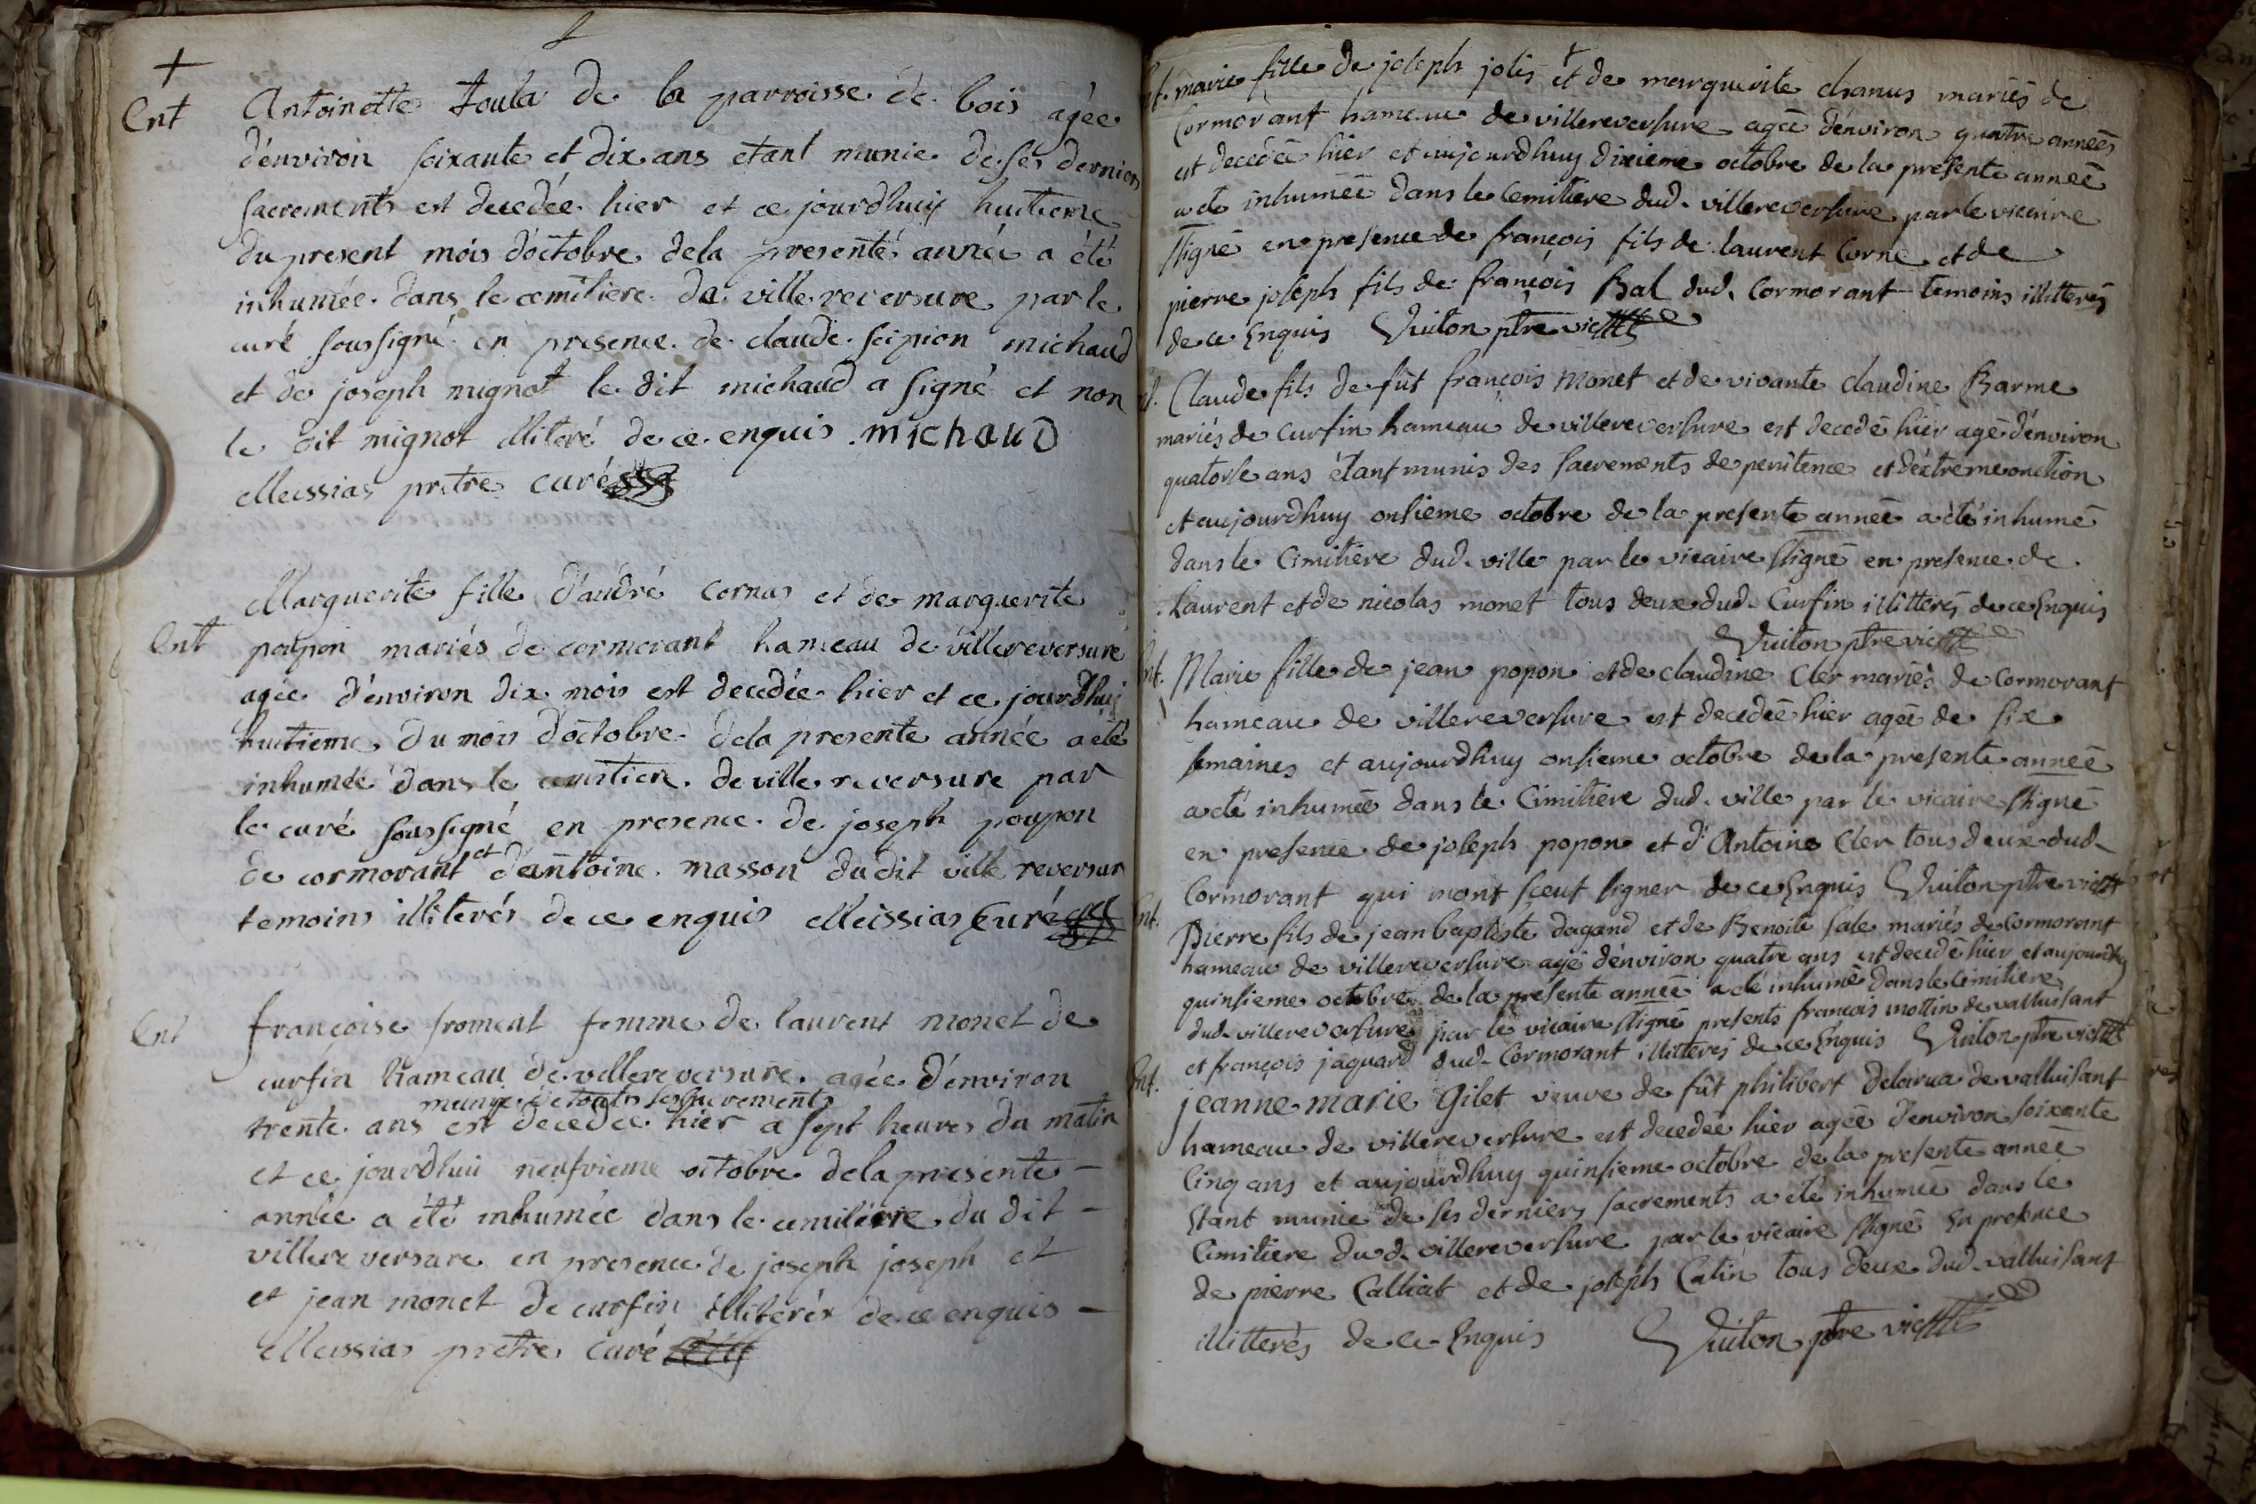 Ent Antoinette Foula de la parroisse de bois agée
d'environ soixante et dix ans etant munie de ses derniers
sacrements est decedée hier et ce jourdhuy huitieme
du present mois d'octobre dela presente année a été
inhumée dans le cemitiere de ville reversure par le
curé soussigné en presence de claude scipion michaud
et de joseph mignot le dit michaud a signé et non
le dit mignot illiteré de ce enquis michaud
Meissias pretre curé
Ent Marguerite fille d'andré cornus et de marguerite
poupon mariés de cormorant hameau de villereversure
agée d'environ dix mois est decedée hier et ce jourdhuy
huitieme du mois d'octobre dela presente année a eté
inhumée dans le cemitiere de ville reversure par
le curé soussigné en presence de joseph poupon
de cormorant et d'antoine masson du dit ville reversur
temoins illiterés de ce enquis Meissias curé
Ent françoise froment femme de laurent monet de
curfin hameau de villereversure agée d'environ
munie de touts ses sacrements
trente ans est decedée hier a sept heures du matin
et ce jourdhui neufvieme octobre dela presente
année a été inhumée dans le cemitiere du dit
villere versure en presence de joseph joseph et
et jean monet de curfin illiterés de ce enquis
Meissias pretre curé
Ent. marie fille de joseph jolis et de marguerite chanus mariés de
Cormorant hameau de villereversure agée d'environ quatre années
est decedée hier et aujourdhuy dixieme octobre de la presente année
a eté inhumée dans le Cemitiere dud. villereversure par le vicaire
ssigné en presence de françois fils de laurent Corne et de
pierre joseph fils de françois Bal dud. Cormorant temoins illitterés
de ce Enquis Vuiton ptre vic
Ent. Claude fils de fut françois Monet et de vivante Claudine Barme
mariés de Curfin hameau de villereversure est decedé hier agé d'environ
quatorse ans étant munis des sacrements de penitence et d'extremeonction
et aujourdhuy onsieme octobre de la presente année a eté inhumé
dans le Cimitiere dud. ville par le vicaire ssigné en presence de
Laurent et de nicolas monet tous deux dud. Curfin illitterés de ce Enquis
Vuiton ptre vic
Ent. Marie fille de jean popon et de claudine Cler mariés de Cormorant
hameau de villereversure est decedée hier agée de six
semaines et aujourdhuy onsieme octobre de la presente année
a eté inhumée dans le Cimitiere dud. ville par le vicaire ssigné
en presence de joseph popon et d'Antoine Cler tous deux dud.
Cormorant qui n'ont sceut signer de ce Enquis Vuiton ptre vic
Ent. Pierre fils de jean baptiste dagand et de Benoite sale mariés de Cormorant
hameau de villereversure agé d'environ quatre ans est decedé hier et aujourdhuy
quinsieme octobre de la presente année a eté inhumé dans le Cimitiere
dud. villereversure par le vicaire ssigné presents françois mottin de valluisant
et françois jaquard dud. Cormorant illitterés de ce Enquis Vuiton ptre vic
Ent. jeanne marie Gilet veuve de fût philibert Delarua de valluisant
hameau de villereversure est decedée hier agée d'environ soixante
Cinq ans et aujourdhuy quinsieme octobre de la presente année
Etant munie de ses derniers sacrements a eté inhumée dans le
Cimitiere dud. villereversure par le vicaire ssigné En presence
de pierre Calliat et de joseph Catin tous deux dud. valluisant
illitterés de ce Enquis Vuiton ptre vic